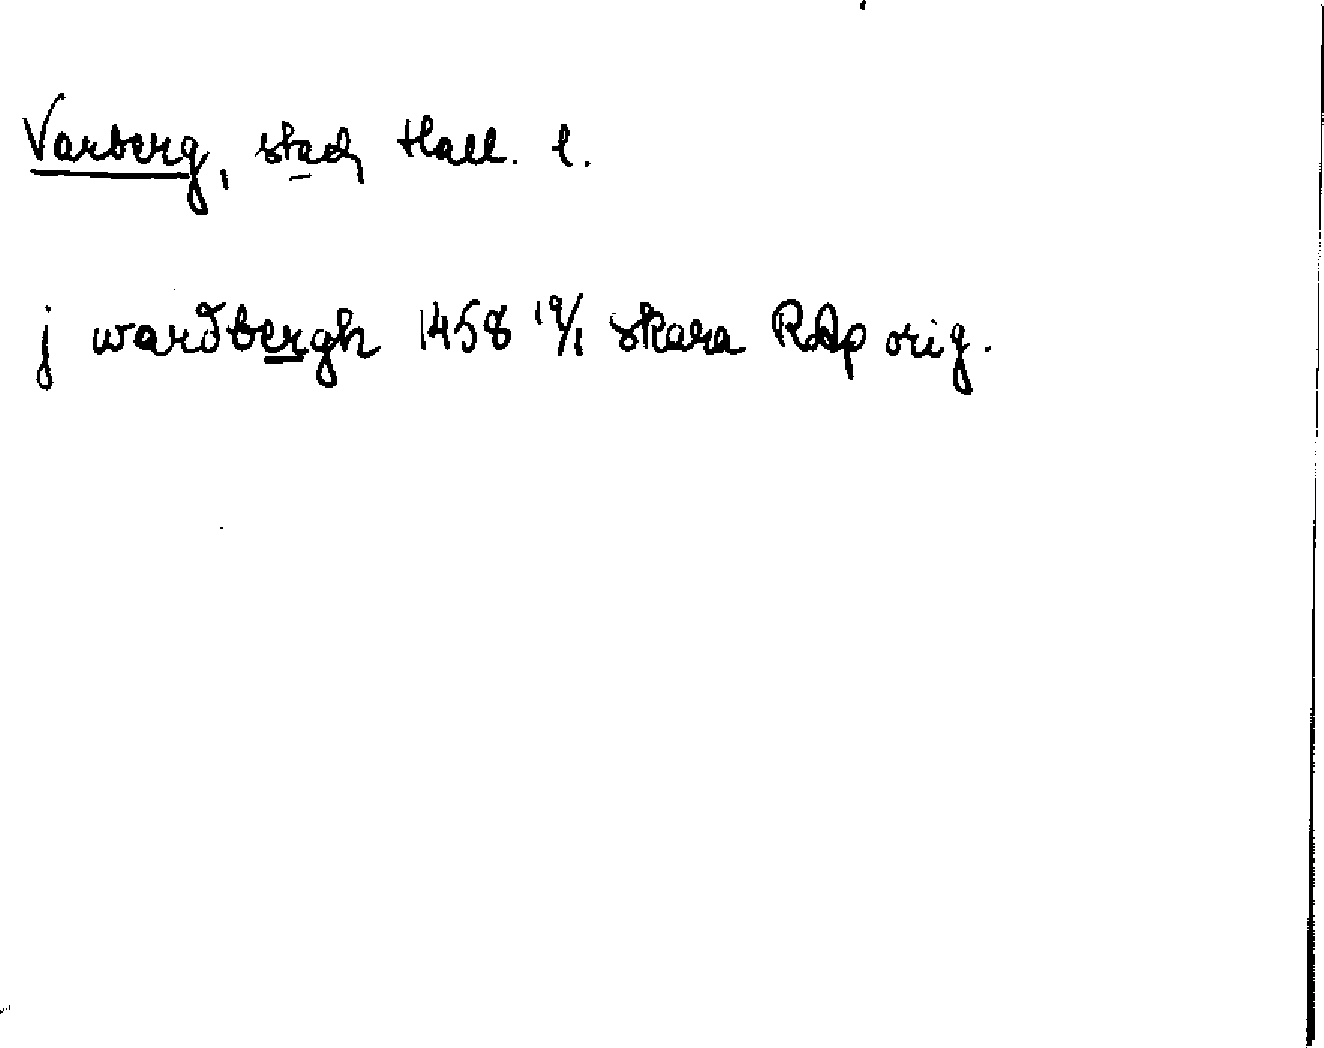 Varberg, stad, Hall. l.
j wardbergh 1458 19/1 Skara RAp orig.